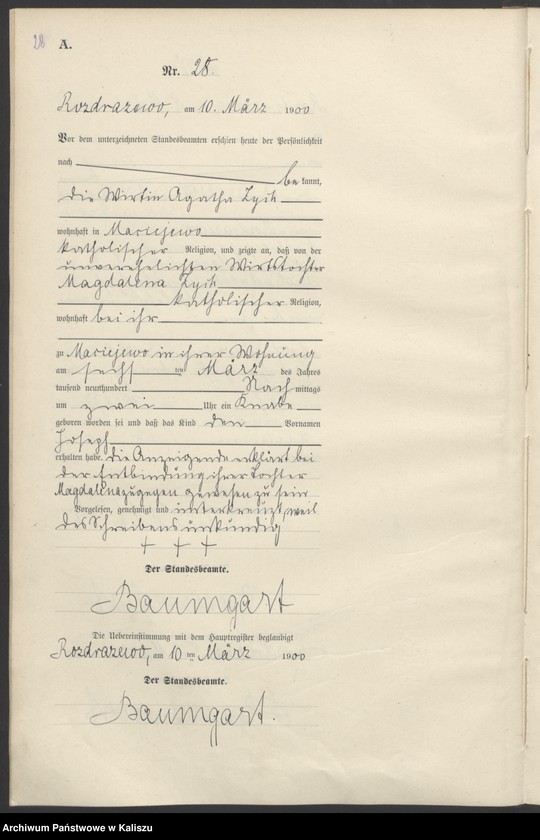 28 A.
Nr. 28.
Rozdrazewo, am 10. März 1900
Vor dem unterzeichneten Standesbeamten erschien heute der Persönlichkeit
nach
be kannt,
die Wirtin Agatha Zyik
wohnhaft in Maciejewo
katholischer Religion, und zeigte an, daß von der
unverehelichten Wirtstochter
Magdalena Zyik
katholischer Religion,
wohnhaft bei ihr
zu Maciejewo in ihrer Wohnung
am sechsten März des Jahres
tausend neunhundert Nach mittags
um zwei Uhr ein Knabe
geboren worden sei und daß das Kind den Vornamen
Joseph
erhalten habe. die Anzeigende erklärt bei
der Entbindung ihrer Tochter
Magdalena zugegen gewesen zu sein
Vorgelesen, genehmigt und unterkreuzt, weil
des Schreibens unkundig
+ + +
Der Standesbeamte.
Baumgart
Die Uebereinstimmung mit dem Hauptregister beglaubigt
Rozdrazewo, am 10 ten März 1900
Der Standesbeamte.
Baumgart.
Archiwum Państwowe w Kaliszu